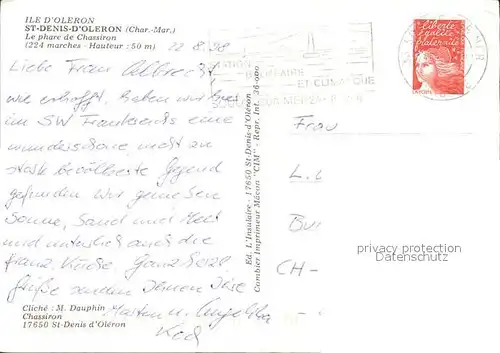 ILE D'OLERON
ST-DENIS-D'OLERON (Char.-Mar.)
Le phare de Chassiron
(224 marches - Hauteur : 50 m)
22.8.98
Liebe Frau Albrecht
wie erhofft, haben wir hier
im SW Frankreichs eine
wunderschöne, nicht zu
stark bevölkerte Gegend
gefunden. Wir geniessen
Sonne, Sand und Meer
und natürlich auch die
franz. Küche. Ganz
Grüße senden Ihnen Ihre
Cliché : M. Dauphin
Chassiron
17650 St-Denis d'Oléron
Ed. L'Insulaire - 17650 St-Denis-d'Oléron
Combier Imprimeur Mâcon "CIM" - Repr. Int.
ET CLIMATIQUE
liberté
égalité
fraternité
LA POSTE
Frau
CH -
privacy protection
Datenschutz